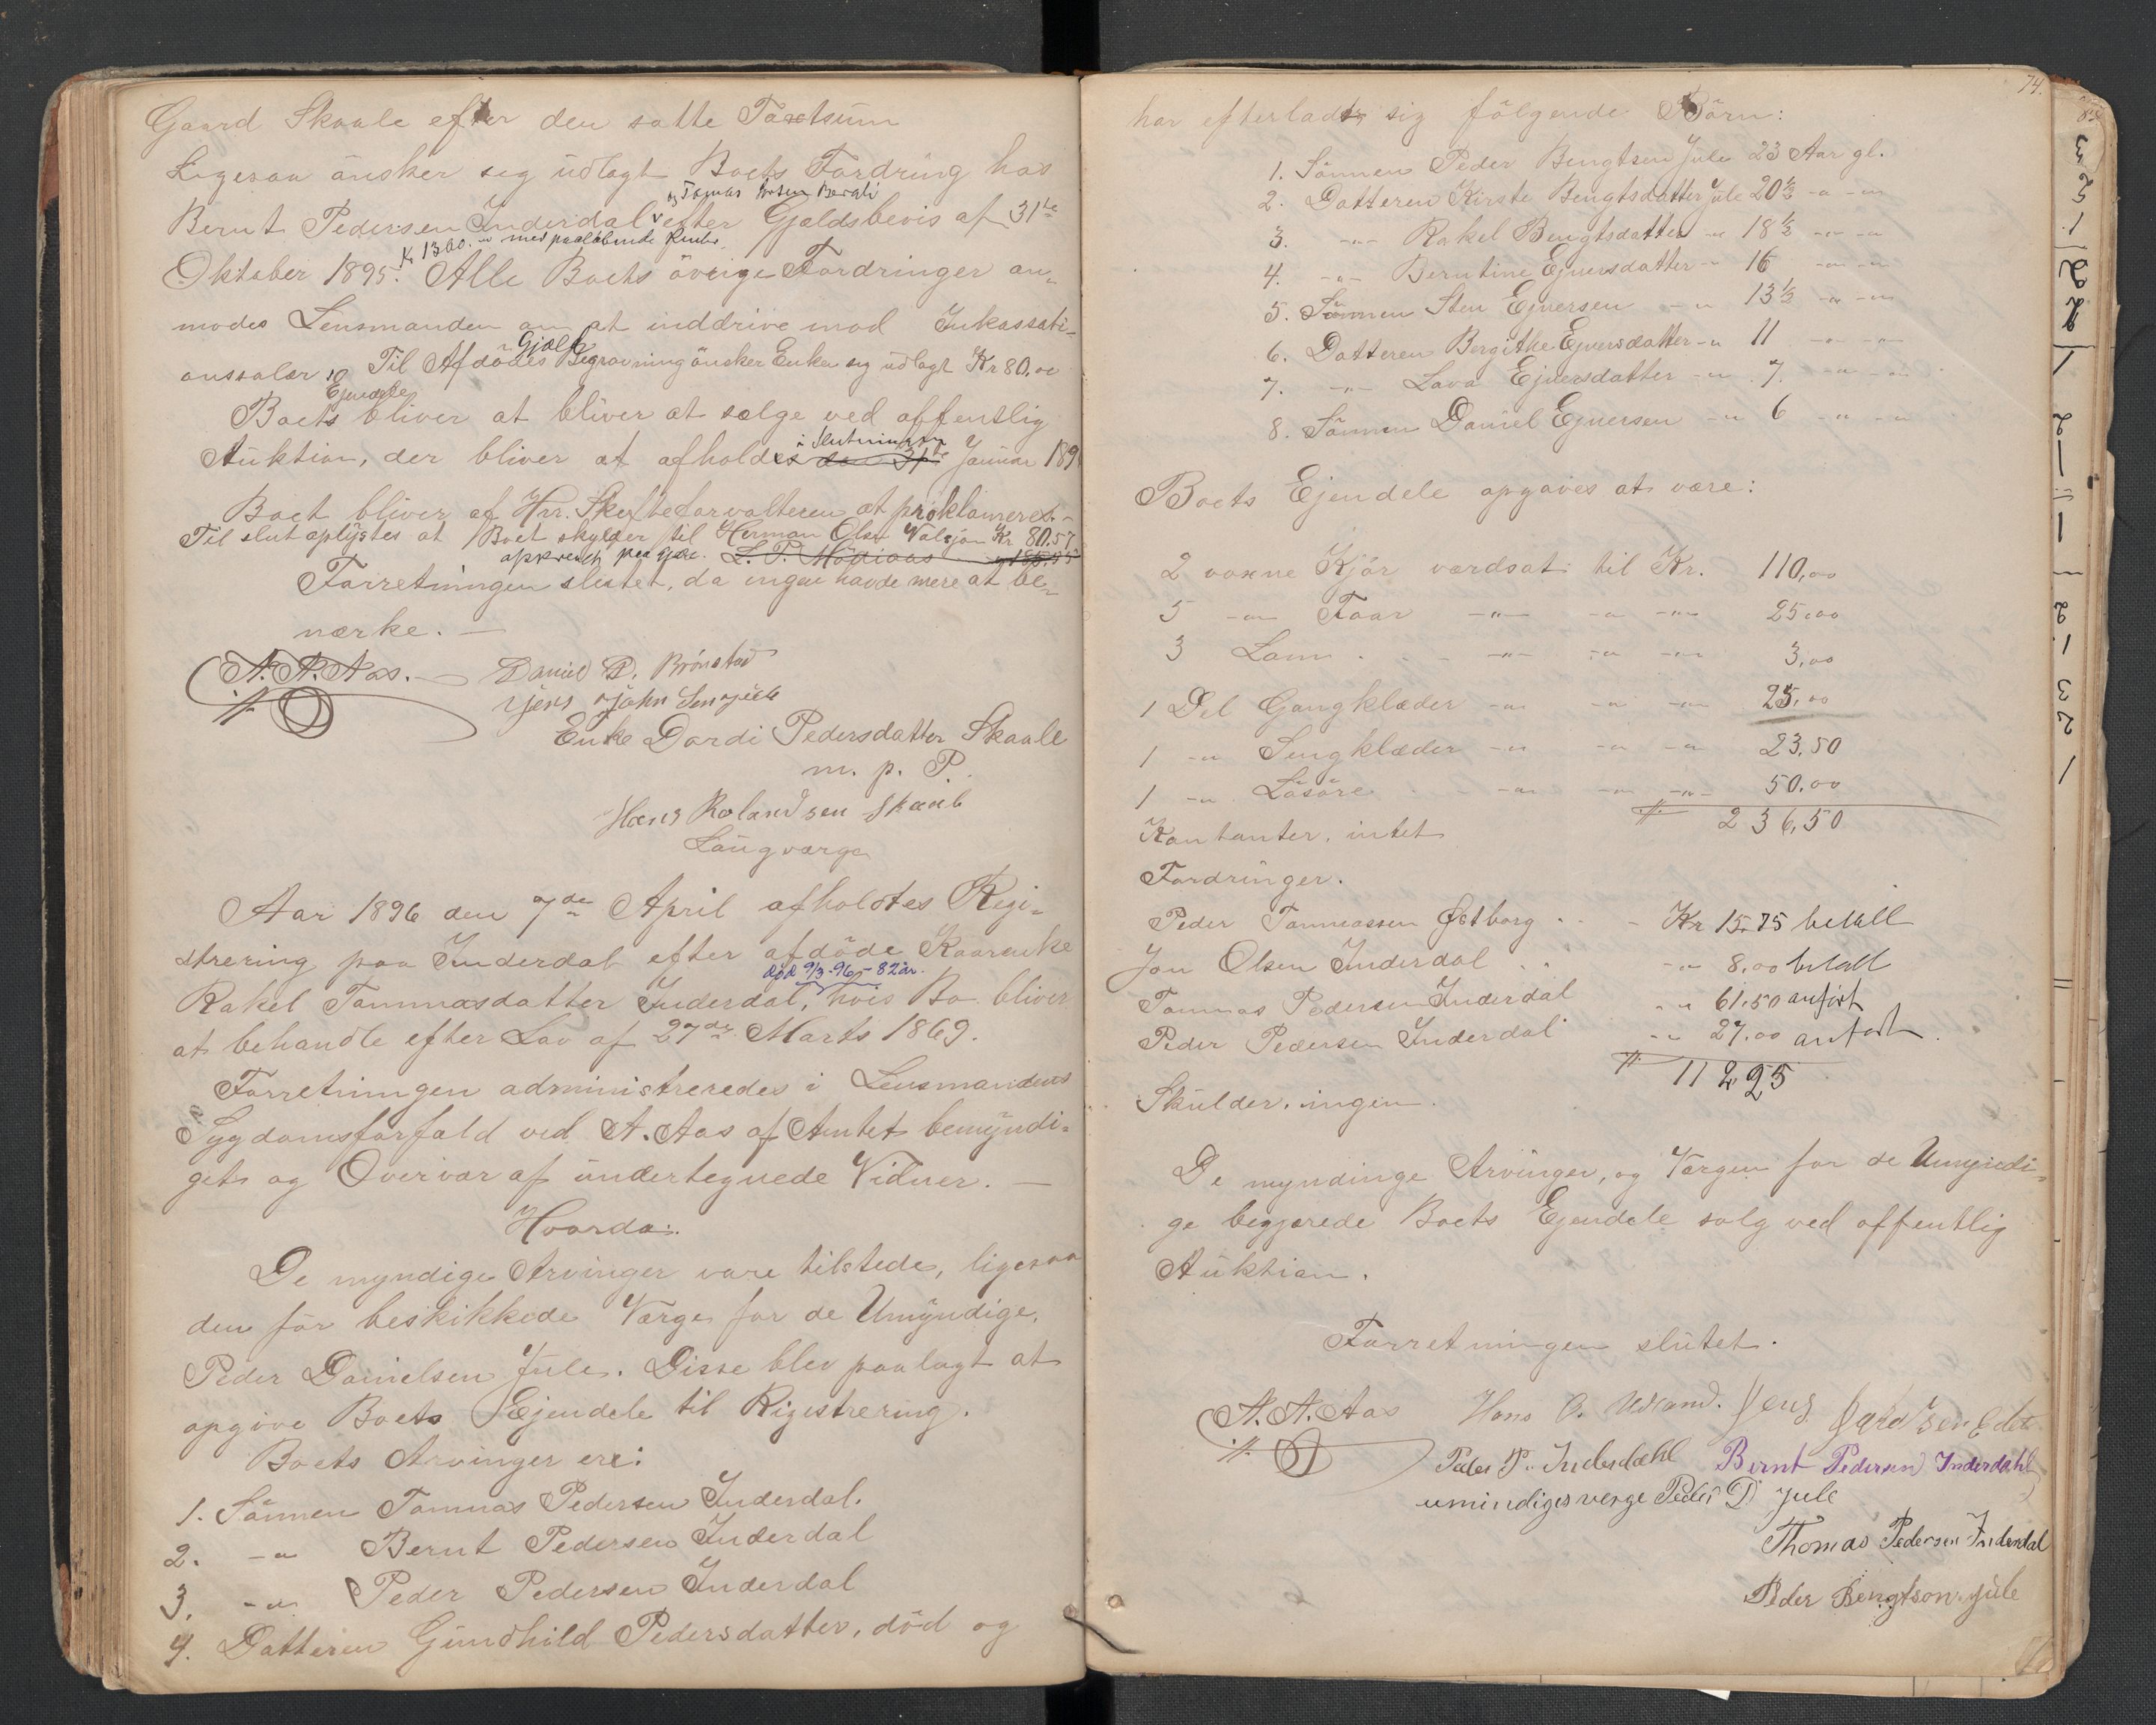 Gaard Skaale efter den satte Taxtsum
Ligesaa önsker seg udlagt Boets Fordring hos
og Tomas
Bernt Pedersen Inderdal efter Gjældsbevis af 31te
Kr 1360. med paalöbende Renter
Oktober 1895. Alle Boets övrige Fordringer an-
modes Lensmanden om at inddrive mod Inkassati-
onssalær. Til Afdödes Begravning önsker Enken seg udlagt Kr 80,00
Gjæld
Ejendele
Boets bliver at bliver at sælge ved offentlig
i Slutningen
Auktion, der bliver at afholdes den 31te Januar 189
Boet bliver af Hrr. Skifteforvalteren at proklameres. -
Til slut oplystes at Boet skylder til Herman Olsen Valsjön Kr 80.57
L. P.
Forretningen sluttet, da ingen havde mere at be-
mærke. -
A. A. Aas. Daniel D. Brönstad
Jens John Sen
Enke Dordi Pedersdatter Skaale
m. p. P.
Hans Rolandsen Skaale
Laugværge
Aar 1896 den 7de April afholdtes Regi-
strering paa Inderdal efter afdöde Kaarenke
död 9/3-96 - 82 år.
Rakel Tommasdatter Inderdal, hvis Bo bliver
at behandle efter Lov af 27de Marts 1869.
Forretningen administreredes i Lensmandens
Sygdomsforfald ved A. Aas af Amtet bemyndi-
get og Overvar af undertegnede Vidner. -
Hvorda:
De myndige Arvinger vare tilstede, ligesaa
den för beskikkede Værge for de Umyndige,
Peder Danielsen Jule. Disse blev paalagt at
opgive Boets Ejendele til Rigistrering.
Boets Arvinger ere:
1. Sönnen Tommas Pedersen Inderdal.
2. -"- Bernt Pedersen Inderdal
3. -"- Peder Pedersen Inderdal
4. Datteren Gundhild Pedersdatter, död og
74.
har efterladt sig fölgende Börn:
1. Sönnen Peder Bengtsen Jule 23 Aar gl.
2. Datteren Kirste Bengtsdatter Jule 20½ -"- -"-
3. -"- Rakel Bengtsdatter -"- 18½ -"- -"-
4. -"- Berntine Ejversdatter -"- 16 -"- -"-
5. Sönnen Sten Ejversen -"- 13½ -"- -"-
6. Datteren Bergithe Ejversdatter -"- 11 -"- -"-
7. -"- Lava Ejversdatter -"- 7. -"- -"-
8. Sönnen Daniel Ejversen -"- 6 -"- -"-
Boets Ejendele opgaves at være:
2 voxne Kjör værdsat til Kr. 110,00
5 -"- Faar -"- -"- -"- 25,00
3 Lam -"- -"- -"- 3,00
1 Del Gangklæder -"- -"- -"- 25,00
1 -"- Sengklæder -"- -"- -"- 23,50
1 -"- Lösöre -"- -"- -"- 50.00
236,50
Kontanter, intet
Fordringer.
Peder Tommassen Østborg - Kr 15.75 betalt
Jon Olsen Inderdal -"- 8,00 betalt
Tommas Pedersen Inderdal -"- 61,50 anfört
Peder Pedersen Inderdal -"- 27,00 anfört.
112,25
Skulder, ingen.
De myndinge Arvinger, og Værgen for de Umyndi-
ge begjærede Boets Ejendele solg ved offentlig
Auktion.
Forretningen slutet.
A. A. Aas Hans O. Jens
Peder P. Inderdahl Bernt Pedersen Inderdahl
umindiges verge Peder D Jule
Thomas Pedersen Inderdal
Peder Bengtson Jule